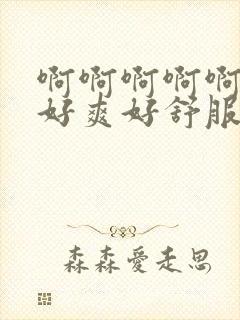 啊啊啊啊啊
好爽好舒服
森森爱走思